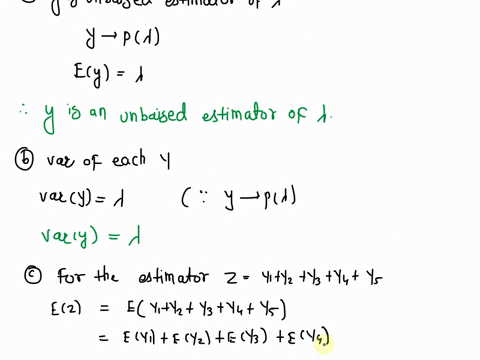 y is unbaised estimator of λ
y → p(λ)
E(y) = λ
∴ y is an unbaised estimator of λ.
ⓑ var of each Y
var(y) = λ (∵ y → p(λ)
var(y) = λ
ⓒ For the estimator Z = Y1+Y2 + Y3 + Y4 + Y5
E(Z) = E(Y1+Y2 + Y3 + Y4 + Y5)
= E(Y1) + E(Y2) + E(Y3) + E(Y4)